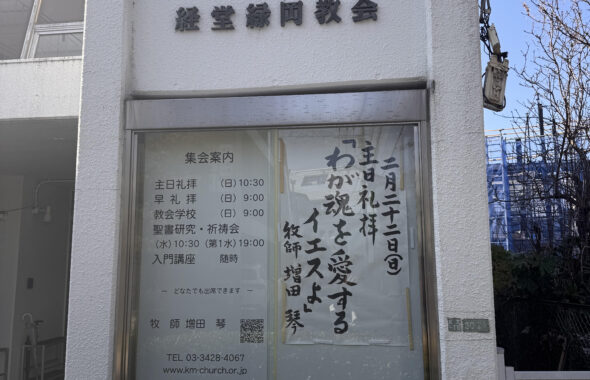 経堂緑岡教会
集会案内
主日礼拝　(日) 10:30
早 礼 拝　(日) 9:00
教会学校　(日) 9:00
聖書研究・祈祷会
(水) 10:30 (第1水) 19:00
入門講座　随時
― どなたでも出席できます ―
牧 師 増田 琴
TEL 03-3428-4067
www.km-church.or.jp
二月二十二日(日)
主日礼拝
「わが魂を愛する
イエスよ」
牧師 増田 琴